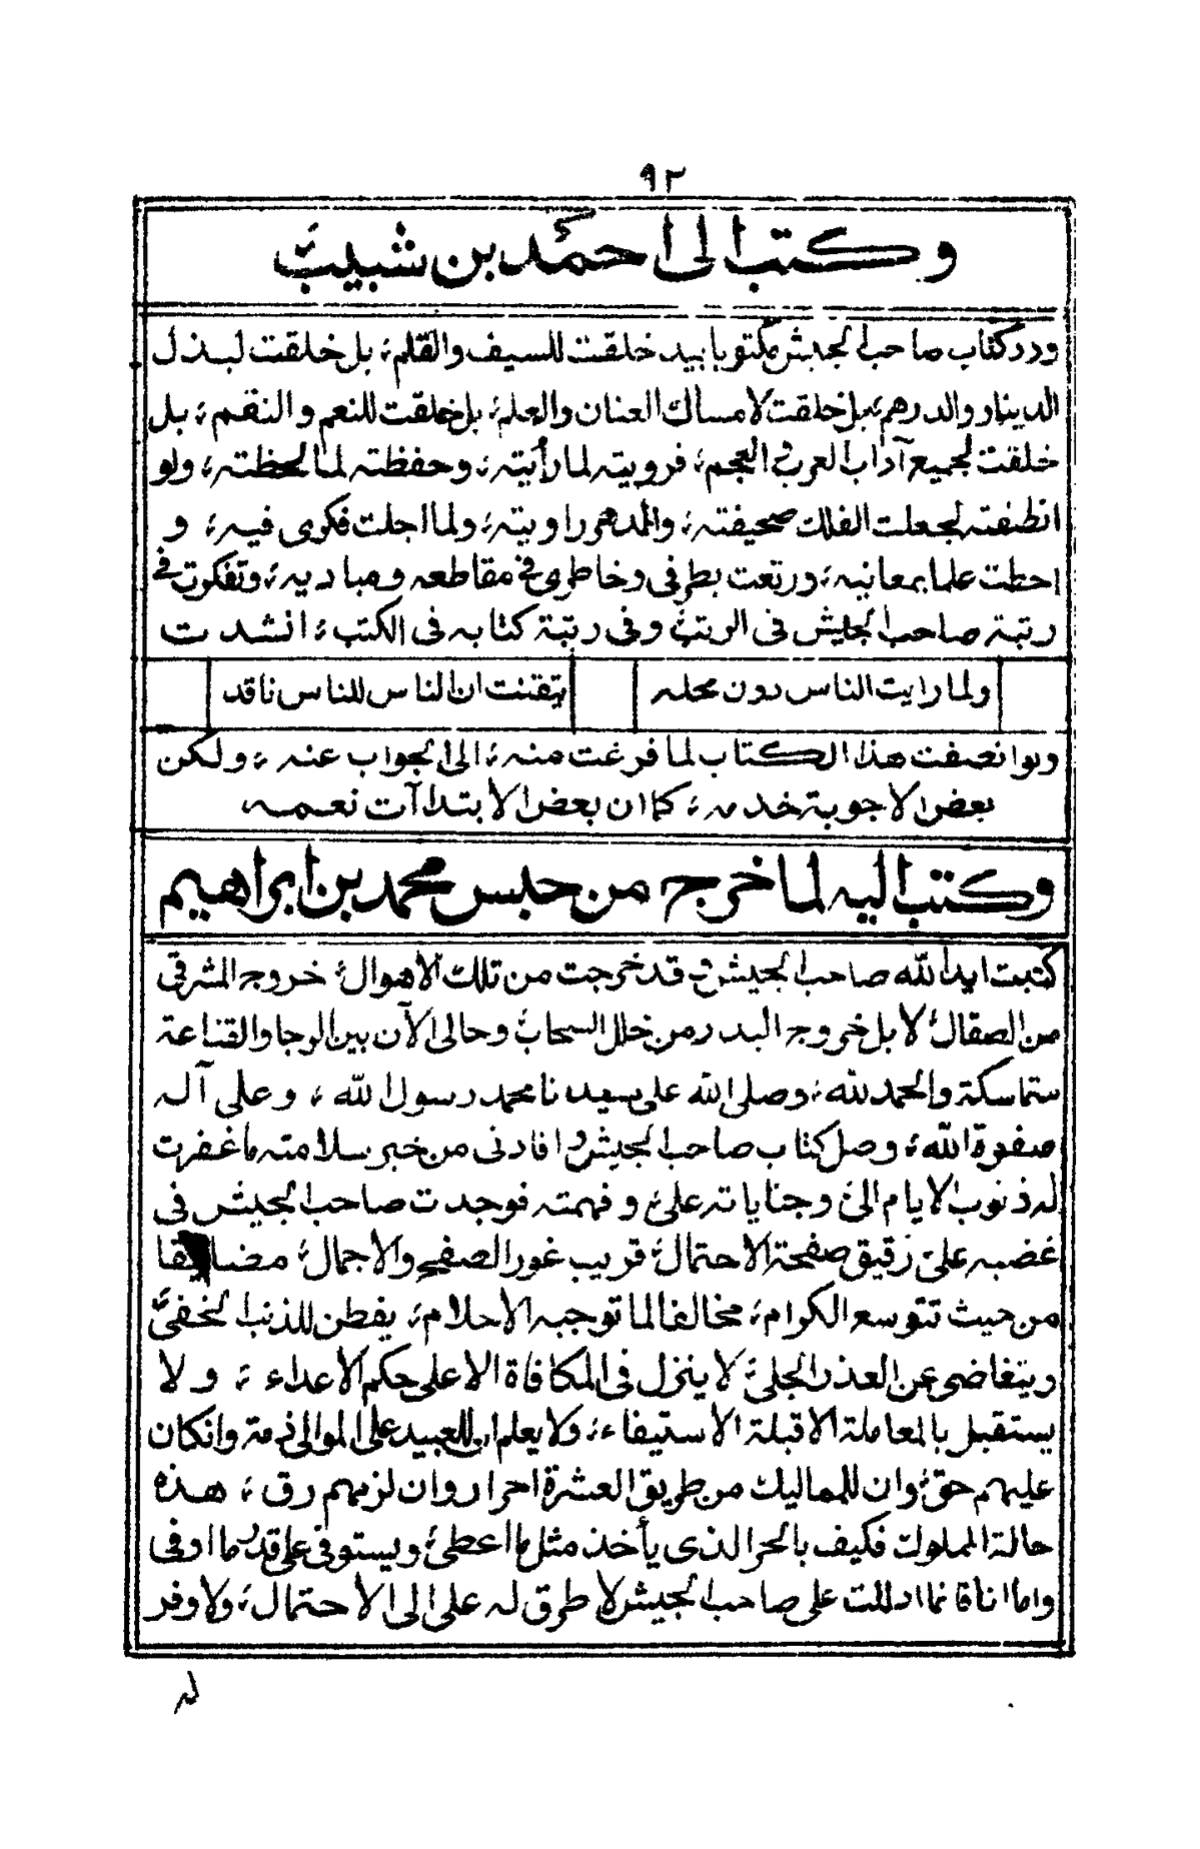 ٩٢
وكتب الى احمد بن شبيب
ورد كتاب صاحب الجيش مكتوبا بيد خلقت للسيف والقلم، بل خلقت لبذل
الدينار والدرهم، بل خلقت لامساك العنان والعلم، بل خلقت للنعم والنقم، بل
خلقت لجميع آداب العرب و العجم، فرويته لما رأيته، وحفظته لما لحظته، ولو
انصفته لجعلت الفلك صحيفته، والدهر راويته، ولما اجلت فكرى فيه، و
احطت علما بمعانيه، ورتعت بطرفى وخاطرى فى مقاطعه ومباديه، وتفكرت فى
رتبة صاحب الجيش فى الرتب، وفى رتبة كتابه فى الكتب، انشدت
ولما رايت الناس دون محله تيقنت ان الناس للناس ناقد
ولو انصفت هذا الكتاب لما فرغت منه، الى الجواب عنه، ولكن
بعض الاجوبة خدمه، كما ان بعض الابتداآت نعمه
وكتب اليه لما خرج من حبس محمد بن ابراهيم
كتبت ايد الله صاحب الجيش و قد خرجت من تلك الاهوال، خروج المشرفى
من الصقال، لا بل خروج البدر من خلل السحاب، وحالى الآن بين الرجا والقناعة
متماسكة والحمد لله، وصلى الله على سيدنا محمد رسول الله، وعلى آله
صفوة الله، وصل كتاب صاحب الجيش و افادنى من خبر سلامته ما غفرت
له ذنوب الايام الىّ وجناياته علىّ، و فهمته فوجدت صاحب الجيش فى
غضبه علىّ رقيق صفحة الاحتمال، قريب غور الصفح والاجمال، مضايقا
من حيث تتوسع الكرام، مخالفا لما توجبه الاحلام، يفطن للذنب الخفىّ
ويتغاضى عن العذر الجلى، لا ينزل فى المكافاة الا على حكم الاعداء، ولا
يستقبل بالمعاملة الا قبلة الاستيفاء، ولا يعلم ان للعبيد على الموالى ذمة وانكان
عليهم حق، وان للمماليك من طريق العشرة احرار وان لزمهم رق، هذه
حالة المملوك فكيف بالحر الذى يأخذ مثل ما اعطى، ويستوفى على قدر ما اوفى
واما انا فانما ادللت على صاحب الجيش لاطرق له علىّ الى الاحتمال، ولاوفر
له